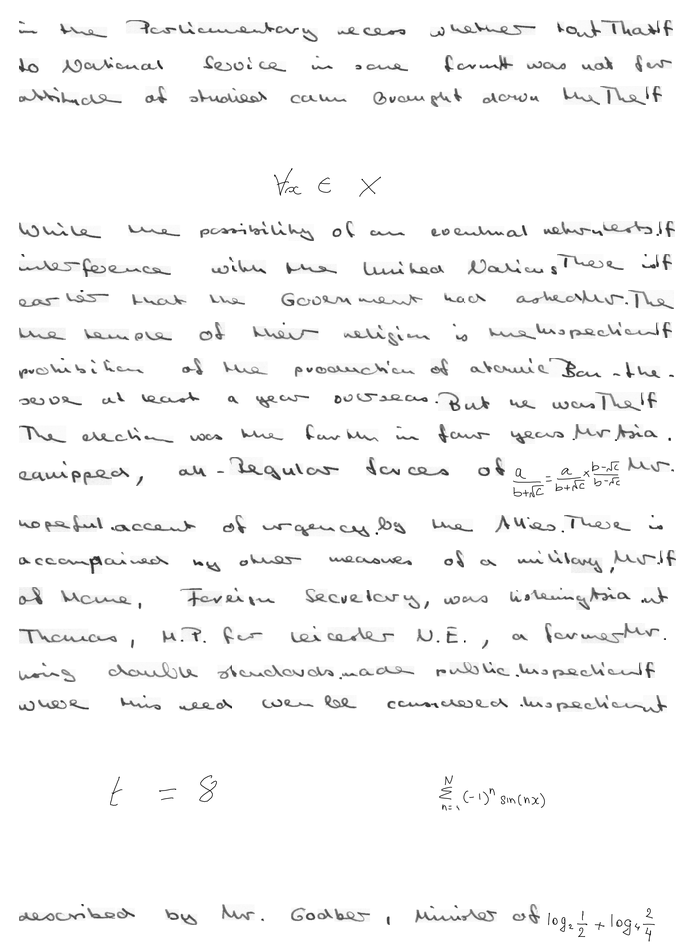 in the Parliamentary recess whether tout That If
to National Service in some form It was not for
attitude of studied calm Brought down the The If
∀x ∈ X
While the possibility of an eventual return tests. If
interference with the United Nations There is If
earlier that the Government had asked Mr. The
the temple of their religion is the Inspection If
prohibition of the production of atomic Ban-the-
serve at least a year overseas. But he was The If
The election was the fourth in four years. Mr. Asia.
equipped, all-Regular forces of \frac{a}{b+\sqrt{c}} = \frac{a}{b+\sqrt{c}} \times \frac{b-\sqrt{c}}{b-\sqrt{c}} Mr.
hopeful. accent of urgency. by the Allies. There is
accompained by other measures of a military, Mr. If
of Home, Foreign Secretary, was listening Asia
Thomas, M.P. for Leicester N.E., a former Mr.
using double standards. made public. Inspection If
where this need can be considered. Inspection
t = 8
\sum_{n=1}^{N} (-1)^n sin(nx)
described by Mr. Godber, Minister of log_2 \frac{1}{2} + log_4 \frac{2}{4}